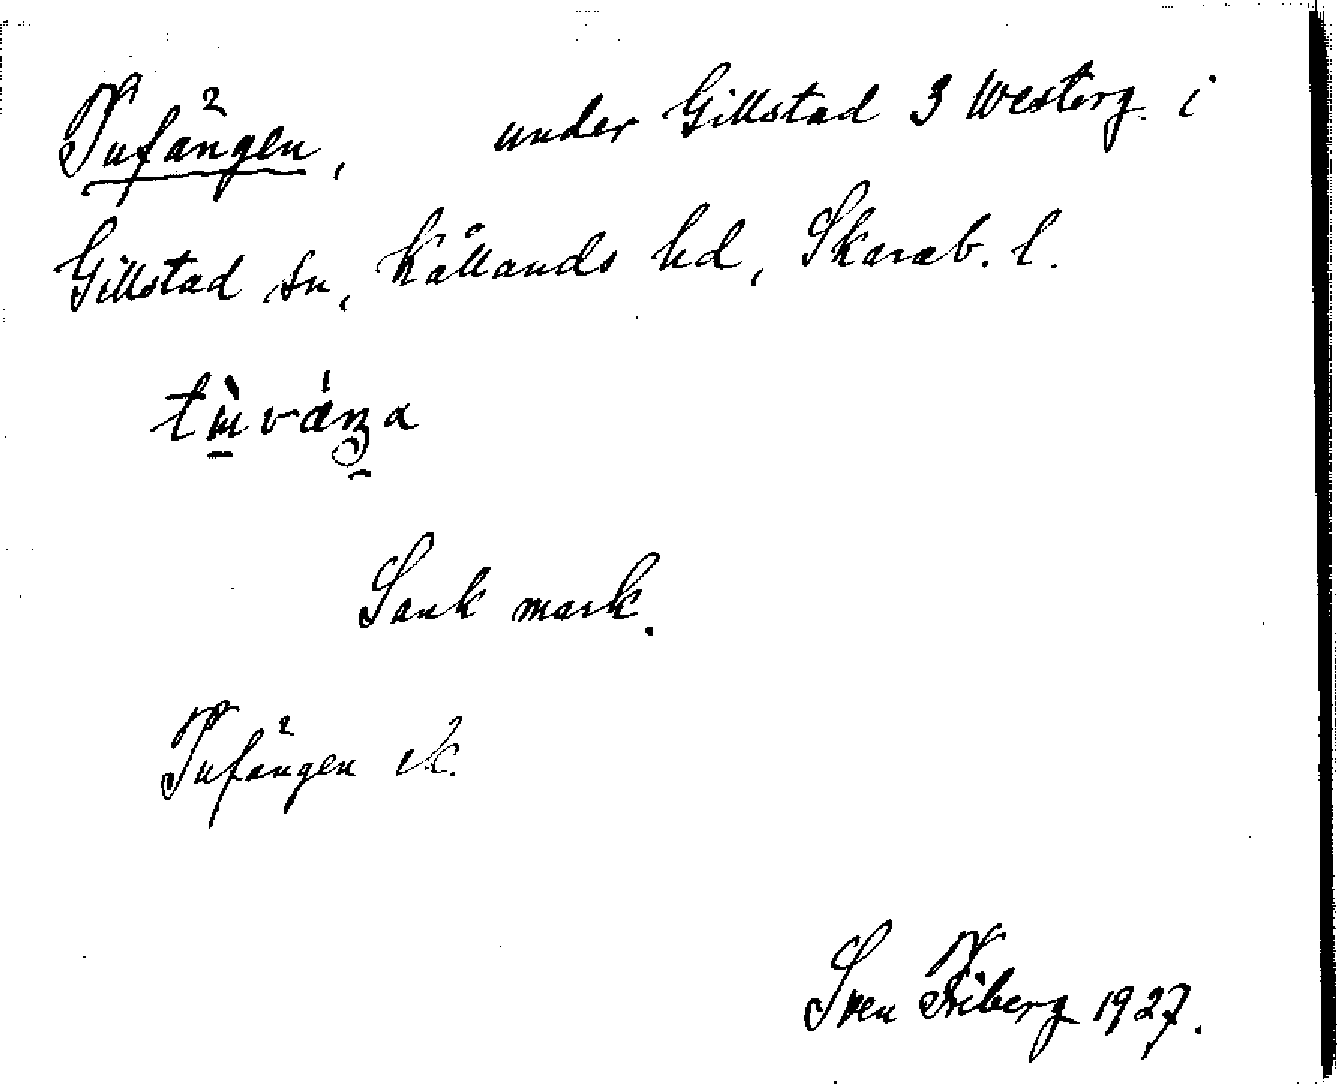 Tufängen, under Gillstad 3 Westerg. i
Gillstad sn, Kållands hd, Skarab. l.
Sank mark.
Tufängen ek.
Sven Friberg 1927.